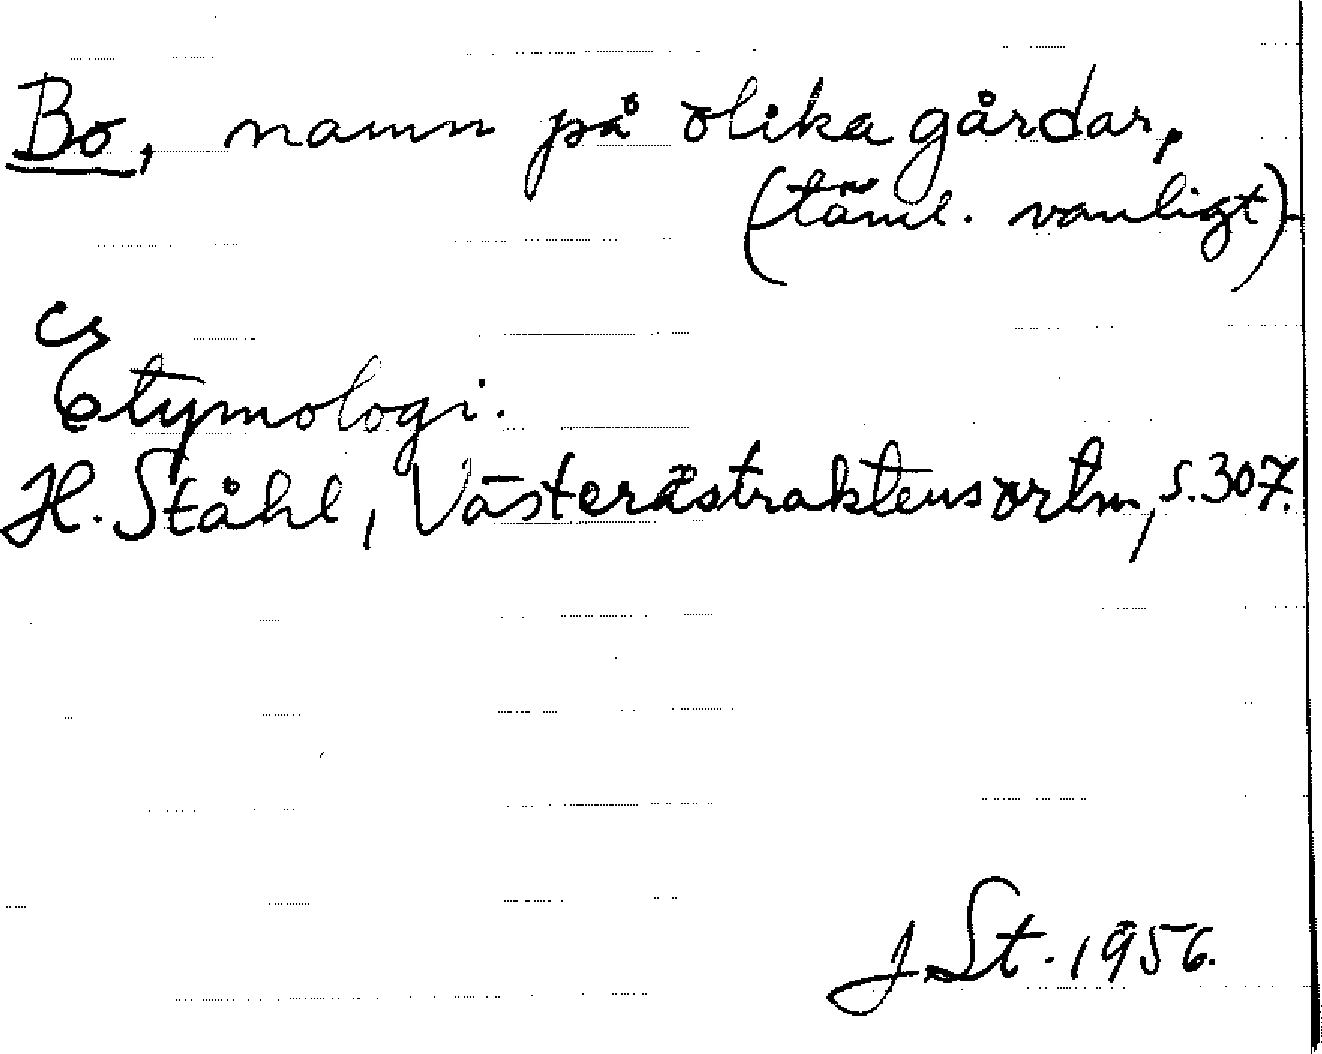 Bo, namn på olika gårdar,
(täml. vanligt)
Etymologi.
H. Ståhl, Västeråstraktens ortn, s. 307.
J. St. 1956.